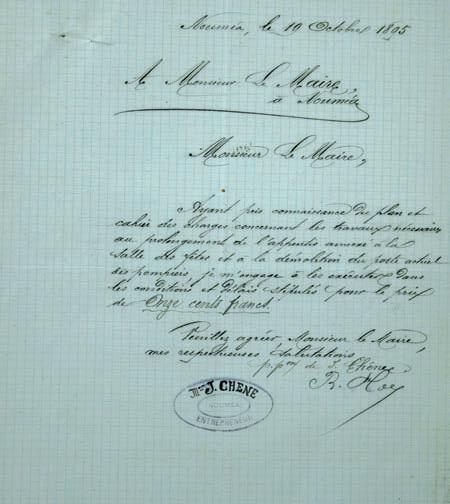 Nouméa, le 19 Octobre 1895
A Monsieur Le Maire,
à Nouméa
Monsieur Le Maire,
Ayant pris connaissance du plan et
cahier des charges concernant les travaux nécessaires
au prolongement de l'appentis annexé à la
salle des fêtes et à la démolition du poste actuel
des pompiers, je m'engage à les exécuter dans
les conditions et délais stipulés pour le prix
de Onze cents francs.
Veuillez agréer, Monsieur le Maire,
mes respectueuses salutations
p.pon de J. Chêne
R.
J. CHENE
NOUMEA
ENTREPRENEUR